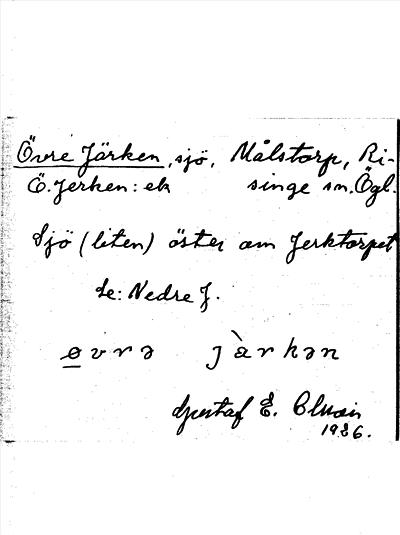 Övre Järken, sjö, Målstorp, Ri-
Ö. Jerken: ek singe sn. Ögl.
Sjö (liten) öster om Jerktorpet
Se: Nedre J.
øvrə jàrkən
Gustaf E.
1926.